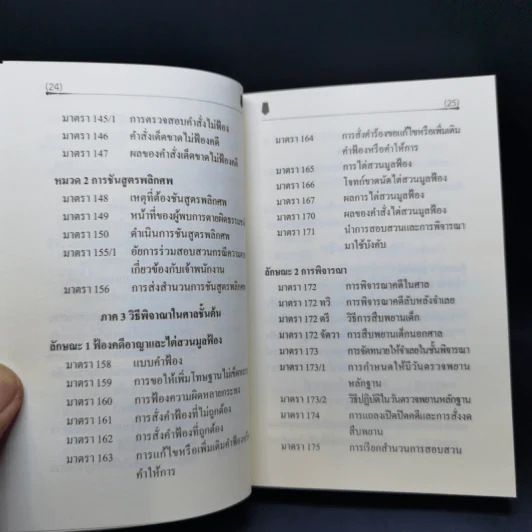 (24)
มาตรา 145/1 การตรวจสอบคำสั่งไม่ฟ้อง
มาตรา 146 คำสั่งเด็ดขาดไม่ฟ้องคดี
มาตรา 147 ผลของคำสั่งเด็ดขาดไม่ฟ้องคดี
หมวด 2 การชันสูตรพลิกศพ
มาตรา 148 เหตุที่ต้องชันสูตรพลิกศพ
มาตรา 149 หน้าที่ของผู้พบการตายผิดธรรมชาติ
มาตรา 150 ดำเนินการชันสูตรพลิกศพ
มาตรา 155/1 อัยการร่วมสอบสวนกรณีความตาย
เกี่ยวข้องกับเจ้าพนักงาน
มาตรา 156 การส่งสำนวนการชันสูตรพลิกศพ
ภาค 3 วิธีพิจาณาในศาลชั้นต้น
ลักษณะ 1 ฟ้องคดีอาญาและไต่สวนมูลฟ้อง
มาตรา 158 แบบคำฟ้อง
มาตรา 159 การขอให้เพิ่มโทษฐานไม่เข็ดหลาบ
มาตรา 160 การฟ้องความผิดหลายกระทง
มาตรา 161 การสั่งคำฟ้องที่ไม่ถูกต้อง
มาตรา 162 การสั่งคำฟ้องที่ถูกต้อง
มาตรา 163 การแก้ไขหรือเพิ่มเติมคำฟ้อง
คำให้การ
(25)
มาตรา 164 การสั่งคำร้องขอแก้ไขหรือเพิ่มเติม
คำฟ้องหรือคำให้การ
มาตรา 165 การไต่สวนมูลฟ้อง
มาตรา 166 โจทก์ขาดนัดไต่สวนมูลฟ้อง
มาตรา 167 ผลการไต่สวนมูลฟ้อง
มาตรา 170 ผลของคำสั่งไต่สวนมูลฟ้อง
มาตรา 171 นำการสอบสวนและการพิจารณา
มาใช้บังคับ
ลักษณะ 2 การพิจารณา
มาตรา 172 การพิจารณาคดีในศาล
มาตรา 172 ทวิ การพิจารณาคดีลับหลังจำเลย
มาตรา 172 ตรี วิธีการสืบพยานเด็ก
มาตรา 172 จัตวา การสืบพยานเด็กนอกศาล
มาตรา 173 การจัดทนายให้จำเลยในชั้นพิจารณา
มาตรา 173/1 การกำหนดให้มีวันตรวจพยาน
หลักฐาน
มาตรา 173/2 วิธีปฏิบัติในวันตรวจพยานหลักฐาน
มาตรา 174 การแถลงเปิดปิดคดีและการสั่งงด
สืบพยาน
มาตรา 175 การเรียกสำนวนการสอบสวน